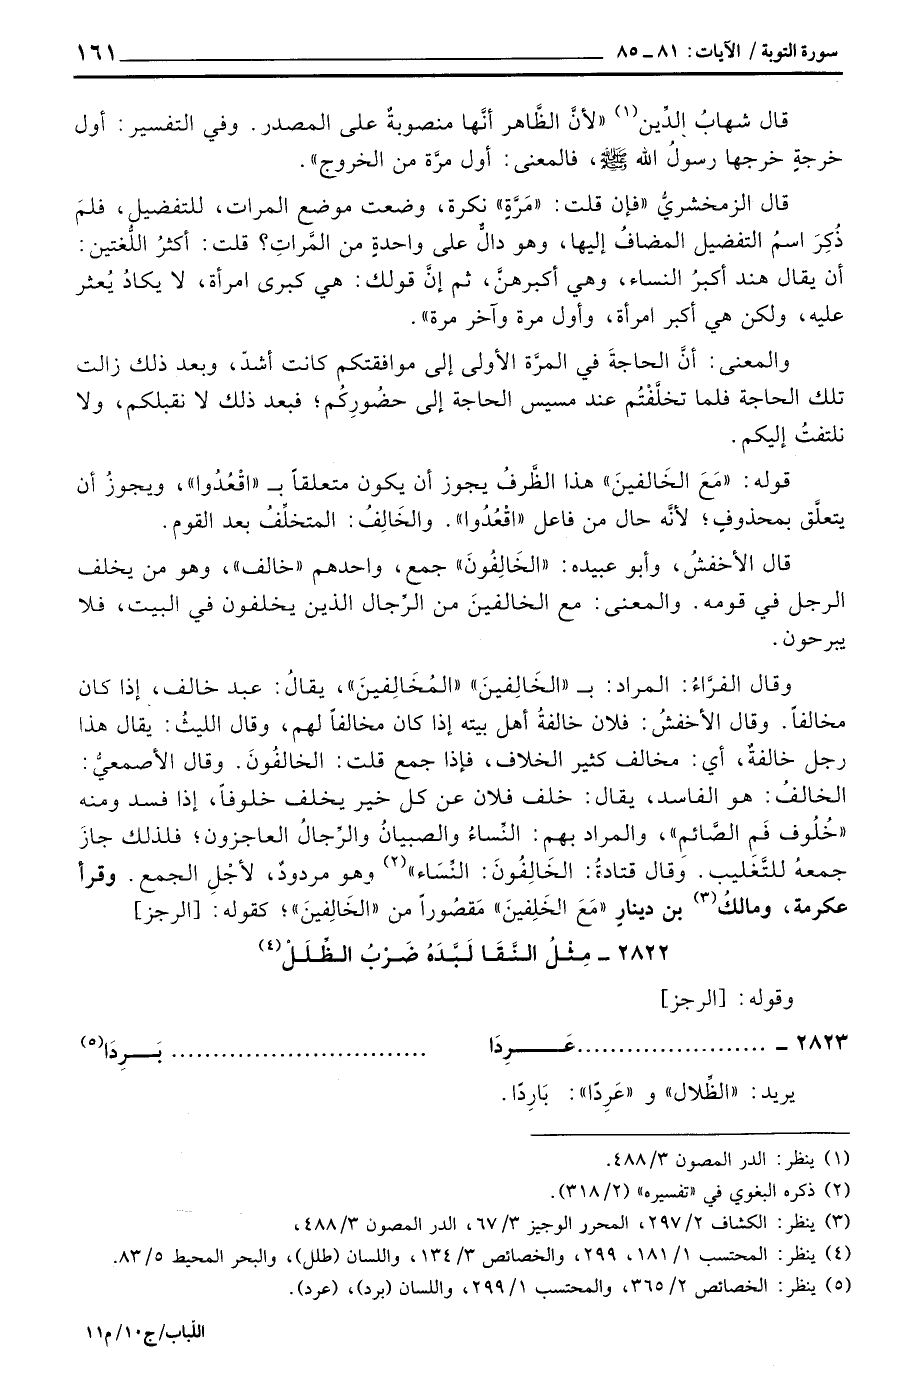 سورة التوبة / الآيات: ٨١ ـ ٨٥ ١٦١
قال شهابُ الدِّين(١) «لأنَّ الظَّاهر أنَّها منصوبةٌ على المصدر. وفي التفسير: أول
خرجةٍ خرجها رسولُ الله ﷺ، فالمعنى: أول مرَّة من الخروج».
قال الزمخشريُّ «فإن قلت: «مَرَّةٍ» نكرة، وضعت موضع المرات، للتفضيل، فلمَ
ذُكِرَ اسمُ التفضيل المضافُ إليها، وهو دالٌّ على واحدةٍ من المَّراتِ؟ قلت: أكثرُ اللُّغتين:
أن يقال هند أكبرُ النساء، وهي أكبرهنَّ، ثم إنَّ قولك: هي كبرى امرأة، لا يكادُ يُعثر
عليه، ولكن هي أكبر امرأة، وأول مرة وآخر مرة».
والمعنى: أنَّ الحاجةَ في المرَّة الأولى إلى موافقتكم كانت أشدّ، وبعد ذلك زالت
تلك الحاجة فلما تخلَّفْتُم عند مسيس الحاجة إلى حضُورِكُم؛ فبعد ذلك لا نقبلكم، ولا
نلتفتُ إليكم.
قوله: «مَعَ الخَالفينَ» هذا الظَّرفُ يجوز أن يكون متعلقاً بـ «اقْعُدُوا»، ويجوزُ أن
يتعلَّق بمحذوفٍ؛ لأنَّه حال من فاعل «اقْعُدُوا». والخَالِفُ: المتخلِّفُ بعد القوم.
قال الأخفشُ، وأبو عبيده: «الخَالِفُونَ» جمع، واحدهم «خالف»، وهو من يخلف
الرجل في قومه. والمعنى: مع الخالفينَ من الرِّجال الذين يخلفون في البيت، فلا
يبرحون.
وقال الفرَّاءُ: المراد: بـ «الخَالِفينَ» «المُخَالِفِينَ»، يقالُ: عبد خالف، إذا كان
مخالفاً. وقال الأخفشُ: فلان خالفةُ أهل بيته إذا كان مخالفاً لهم، وقال الليثُ: يقال هذا
رجل خالفةٌ، أي: مخالف كثير الخلاف، فإذا جمع قلت: الخالفُونَ. وقال الأصمعيُّ:
الخالفُ: هو الفاسد، يقال: خلف فلان عن كل خير يخلف خلوفاً، إذا فسد ومنه
«خُلُوف فَم الصَّائم»، والمراد بهم: النِّساءُ والصبيانُ والرِّجالُ العاجزون؛ فلذلك جازَ
جمعهُ للتَّغليب. وَقال قتادةُ: الخَالِفُونَ: النِّسَاء»(٢) وهو مردودٌ، لأجْلِ الجمع. وقرأ
عكرمة، ومالكُ(٣) بن دينارٍ «مَعَ الخَلِفِينَ» مَقصُوراً من «الخَالِفِينَ»؛ كقوله: [الرجز]
٢٨٢٢ ـ مِثْلُ النَّقَا لَبَّدَهُ ضَرْبُ الظَّلَلْ(٤)
وقوله: [الرجز]
٢٨٢٣ ـ ......................عَــرِدَا .............................. بَــرِدَا(٥)
يريد: «الظِّلال» و «عَرِدًا»: بَارِدًا.
(١) ينظر: الدر المصون ٤٨٨/٣.
(٢) ذكره البغوي في «تفسيره» (٣١٨/٢).
(٣) ينظر: الكشاف ٢٩٧/٢، المحرر الوجيز ٦٧/٣، الدر المصون ٤٨٨/٣،
(٤) ينظر: المحتسب ١٨١/١، ٢٩٩، والخصائص ١٣٤/٣، واللسان (طلل)، والبحر المحيط ٨٣/٥.
(٥) ينظر: الخصائص ٣٦٥/٢، والمحتسب ٢٩٩/١، واللسان (برد)، (عرد).
اللباب/ج١٠/م١١